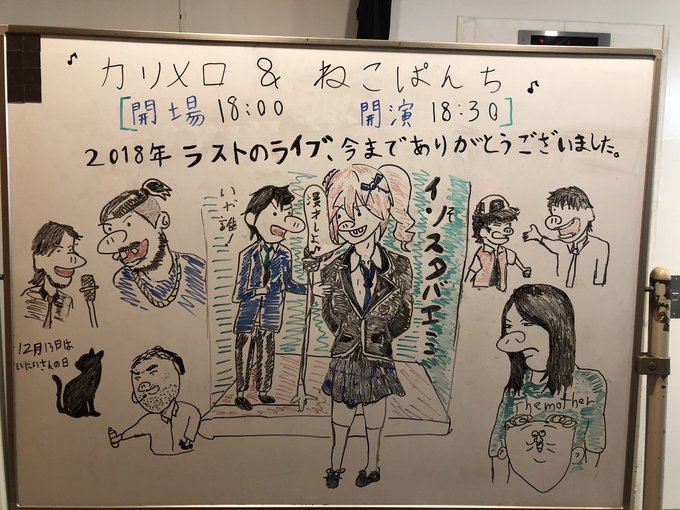 カリメロ & ねこぱんち
[開場 18:00 開演 18:30]
2018年 ラストのライブ、今までありがとうございました。
いや誰!
漫才しよ
イソスタバエミ
そ
12月13日は
いにいさんの日
Themother